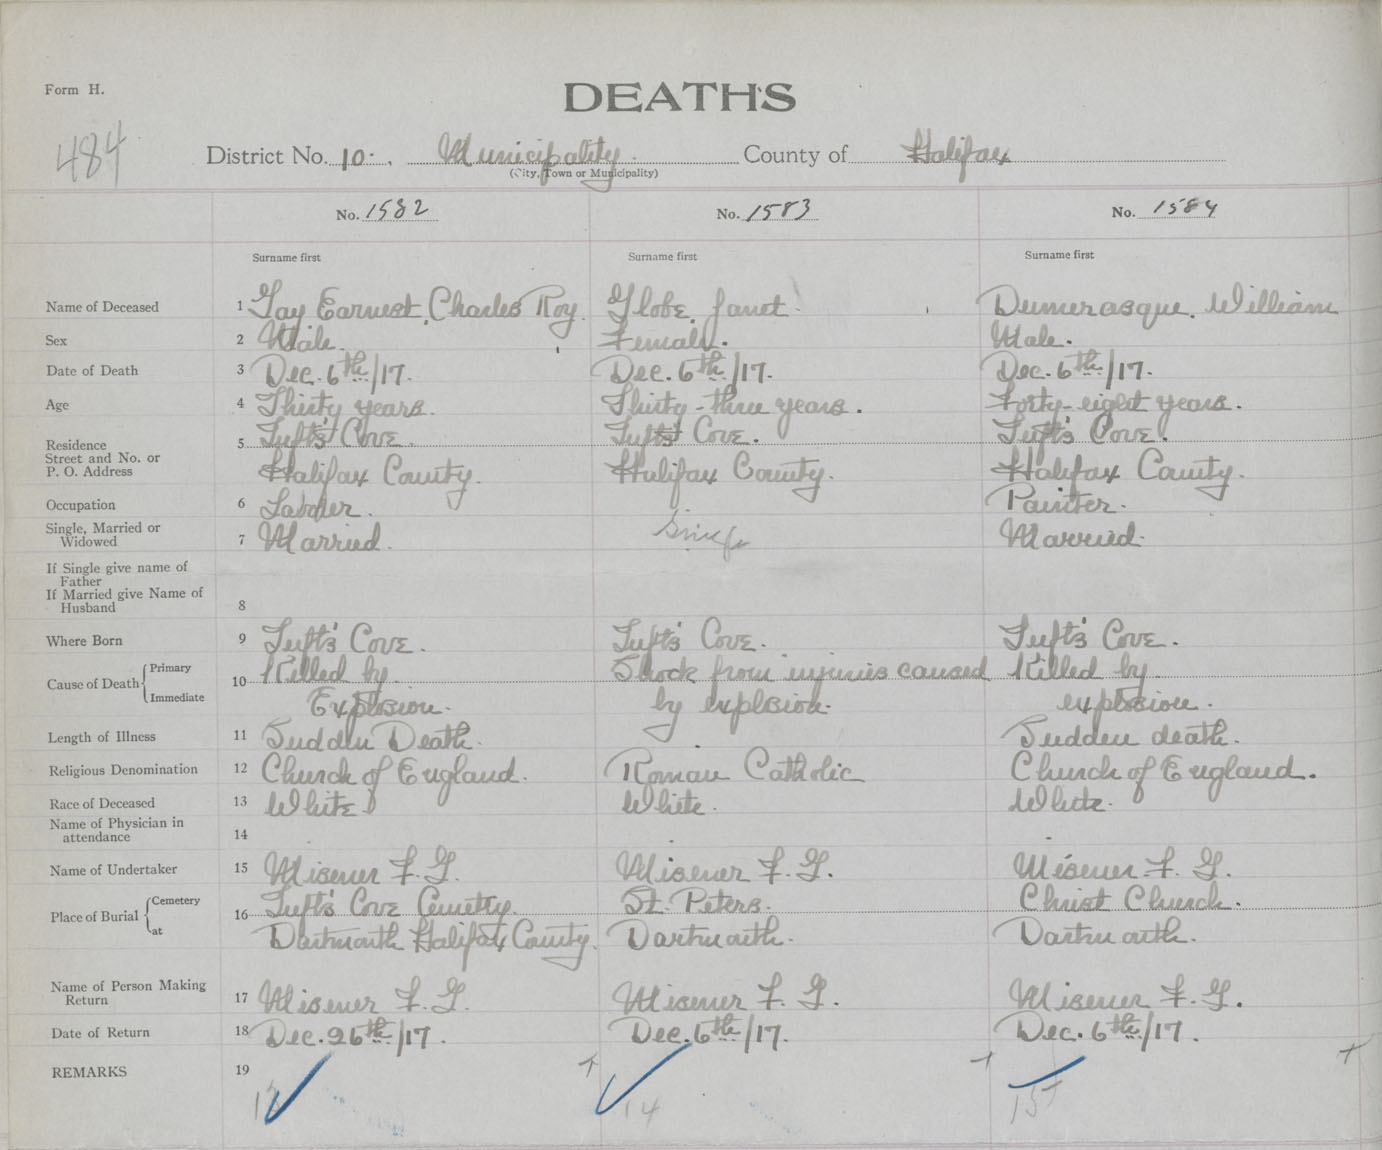 Form H.
DEATHS
484
District No. 10. , Municipality. County of Halifax
(City, Town or Municipality)
No. 1582 No. 1583 No. 1584
Surname first Surname first Surname first
Name of Deceased 1 Gay Earnest, Charles Roy. Globe, Janet. Dumerasque, William
Sex 2 Male. Female. Male.
Date of Death 3 Dec. 6th/17. Dec. 6th/17. Dec. 6th/17.
Age 4 Thirty years. Thirty-three years. Forty-eight years.
Residence 5 Tuft's Cove. Tuft's Cove. Tuft's Cove.
Street and No. or
P. O. Address Halifax County. Halifax County. Halifax County.
Occupation 6 Laborer. Painter.
Single, Married or
Widowed 7 Married. Single Married.
If Single give name of
Father
If Married give Name of
Husband 8
Where Born 9 Tuft's Cove. Tuft's Cove. Tuft's Cove.
Cause of Death Primary 10 Killed by Shock from injuries caused Killed by
Immediate Explosion. by explosion. explosion.
Length of Illness 11 Sudden Death. Sudden death.
Religious Denomination 12 Church of England. Roman Catholic Church of England.
Race of Deceased 13 White White. White.
Name of Physician in
attendance 14
Name of Undertaker 15 Misener F. G. Misener F. G. Misener F. G.
Place of Burial Cemetery 16 Tuft's Cove Cemetty. St. Peters. Christ Church.
at Dartmouth Halifax County. Dartmouth. Dartmouth.
Name of Person Making
Return 17 Misener F. G. Misener F. G. Misener F. G.
Date of Return 18 Dec. 26th/17. Dec. 6th/17. Dec. 6th/17.
REMARKS 19
14 15